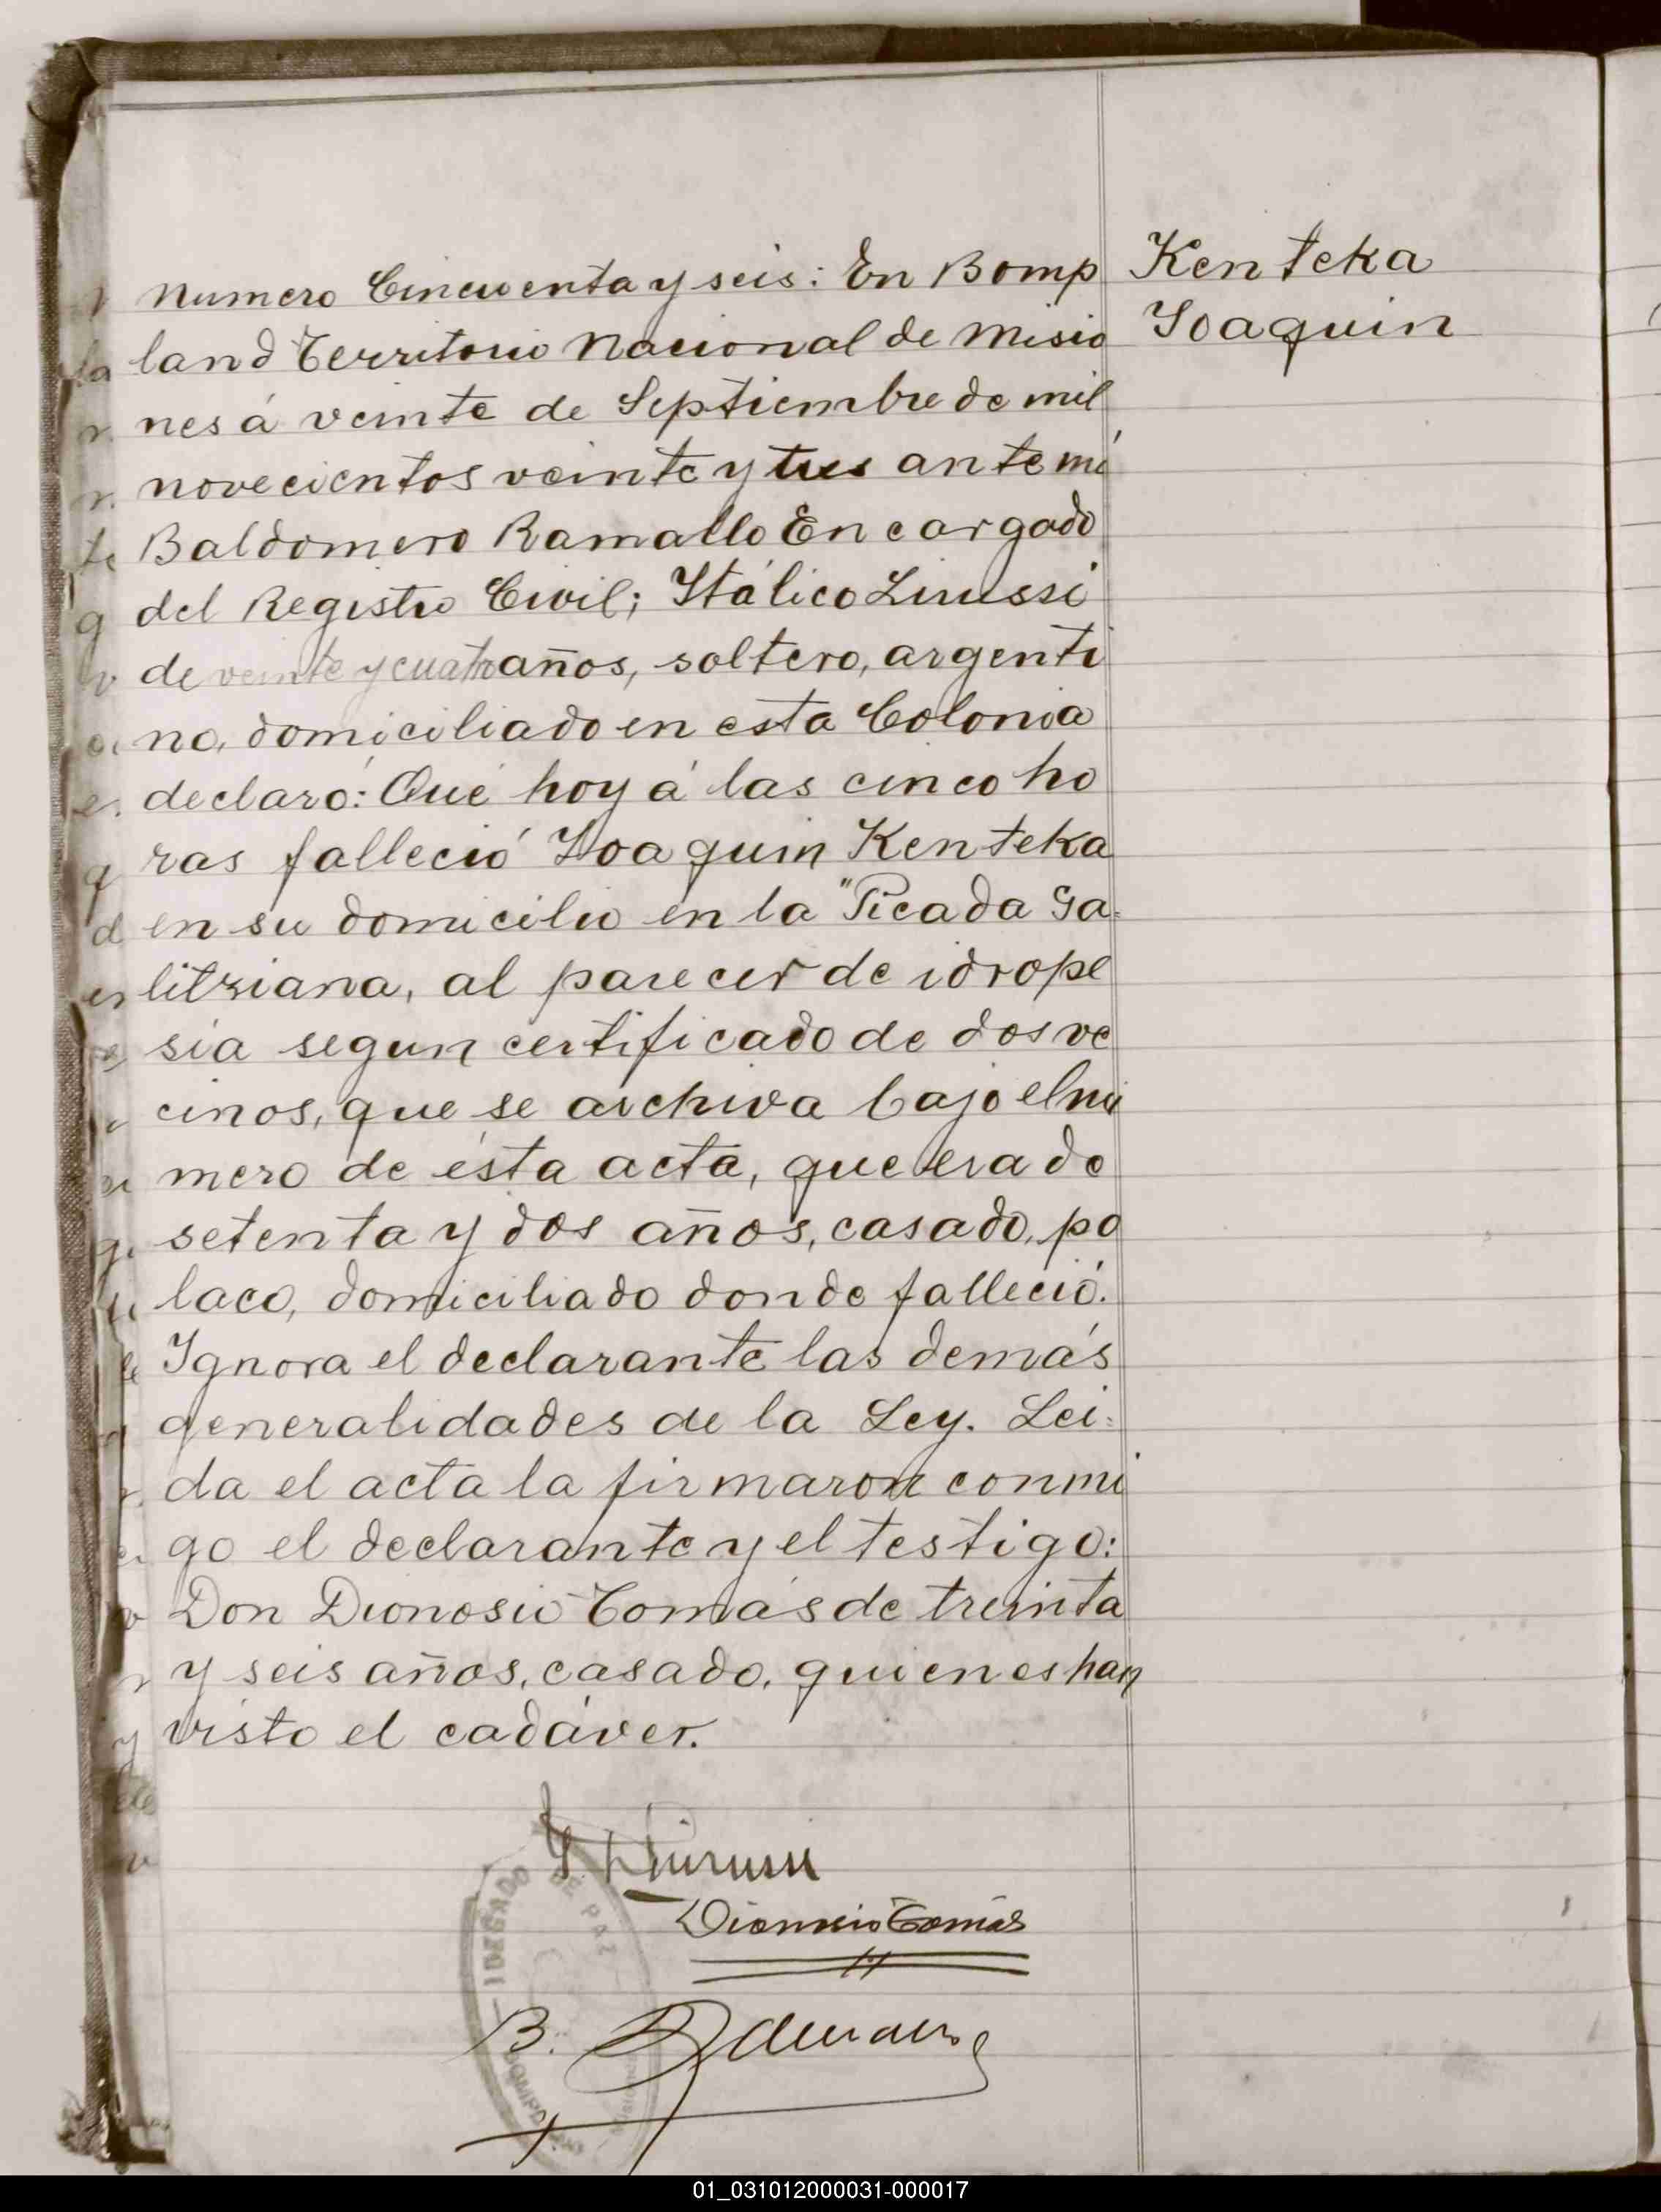 Kenteka
Joaquin
Numero Cincuenta y seis: En Bomp
land Territorio Nacional de Misio
nes á veinte de Septiembre de mil
novecientos veinte y tres ante mi
Baldomero Ramallo Encargado
del Registro Civil; Itálico Linussi
de veinte y cuatro años, soltero, argenti
no, domiciliado en esta Colonia
declaró: Que hoy á las cinco ho
ras falleció Joaquin Kenteka
en su domicilio en la "Picada Ga=
litziana, al parecer de idrope
sia segun certificado de dos ve
cinos, que se archiva bajo el nú
mero de ésta acta, que era de
setenta y dos años, casado, po
laco, domiciliado donde falleció.
Ignora el declarante las demás
generalidades de la Ley. Lei=
da el acta la firmaron conmi
go el declarante y el testigo:
Don Dionosio Tomás de treinta
y seis años, casado, quienes han
visto el cadáver.
Dionisio Tomás
B.
DE PAZ
01_031012000031-000017